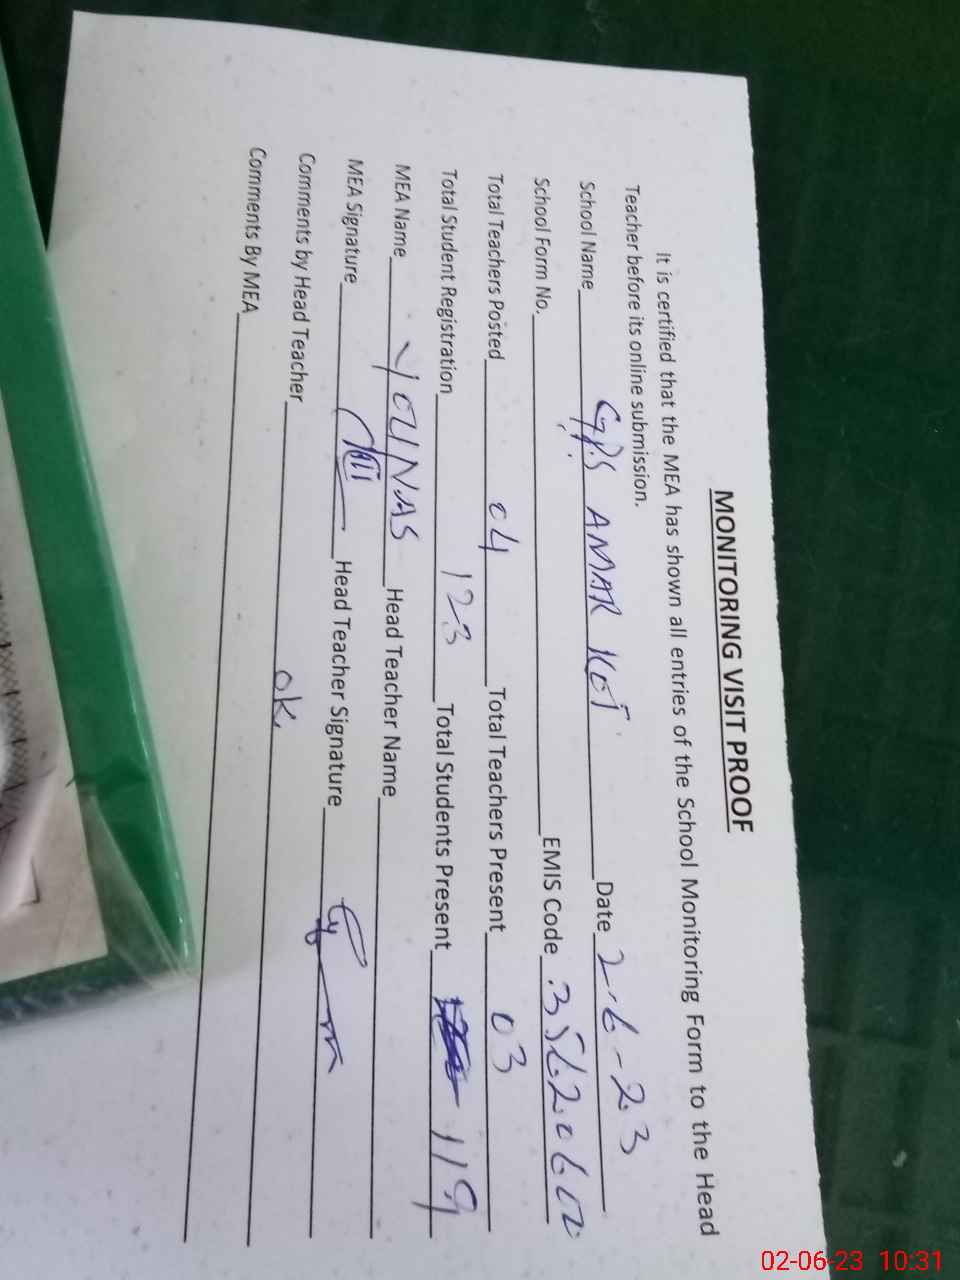 MONITORING VISIT PROOF
It is certified that the MEA has shown all entries of the School Monitoring Form to the Head
Teacher before its online submission.
School Name GPS AMAR KOT Date 2-6-23
School Form No. EMIS Code
Total Teachers Posted 04 Total Teachers Present 03
Total Student Registration 123 Total Students Present 119
MEA Name YOUNAS Head Teacher Name
MEA Signature Head Teacher Signature
Comments by Head Teacher ok.
Comments By MEA
02-06-23 10:31